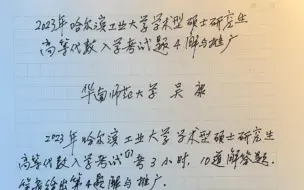 2023年哈尔滨工业大学学术型硕士研究生
高等代数入学考试题4解与推广
华南师范大学 吴康
2023年哈尔滨工业大学学术型硕士研究生
高等代数入学考试[1]考3小时, 10道解答题.
第4题解与推广.